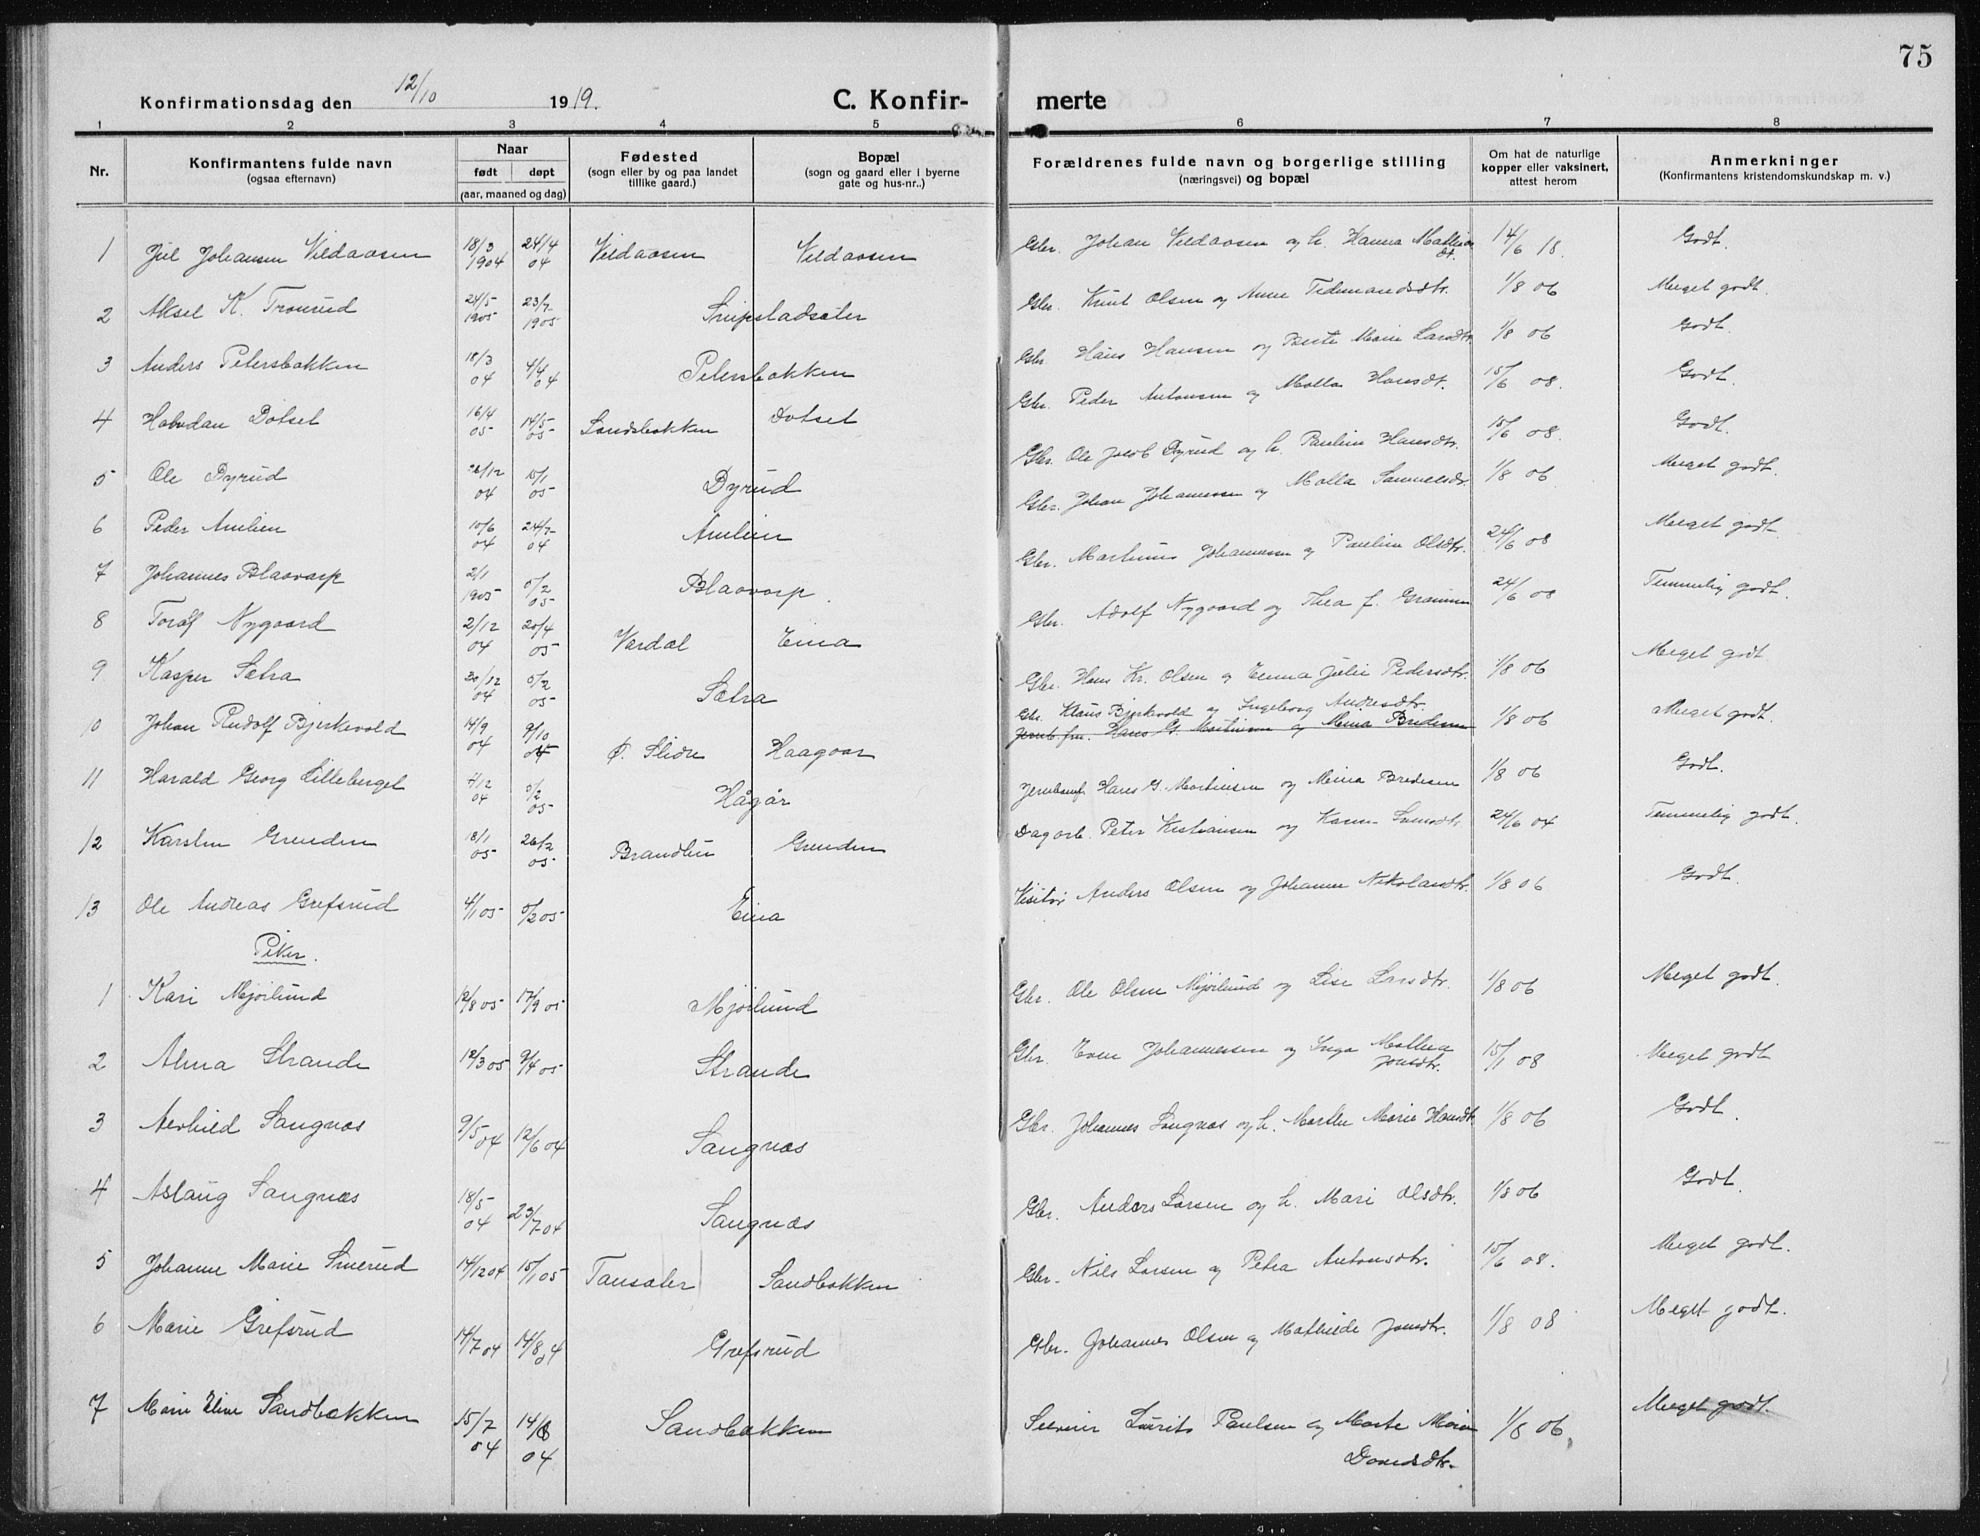 75
Konfirmationsdag den 12/10 1919.
C. Konfir- merte
1 2 3 4 5 6 7 8
Nr.
Konfirmantens fulde navn
(ogsaa efternavn)
Naar
født døpt
(aar, maaned og dag)
Fødested
(sogn eller by og paa landet
tillike gaard.)
Bopæl
(sogn og gaard eller i byerne
gate og hus-nr..)
Forældrenes fulde navn og borgerlige stilling
(næringsvei) og bopæl
Om hat de naturlige
kopper eller vaksinert,
attest herom
Anmerkninger
(Konfirmantens kristendomskundskap m. v.)
1 Juel Johansen Vildaasen 18/3 1904 24/4 04 Vildaasen Vildaasen Gbr. Johan Vildaasen og h. Hanna 14/6 18. Godt.
2 Aksel K. Tronrud 24/5 1905 23/7 1905 Snipstadsæter Gbr. Knut Olsen og Anne Tidemandsdtr. 1/8 06 Meget godt.
3 Anders Petersbakken 18/3 04 4/4 04 Petersbakken Gbr Hans Hansen og Berte Marie Larsdtr 1/8 06 Godt.
4 Halvdan Dotset 16/4 05 14/5 05 Sandsbakken Dotset Gbr. Peder Antonsen og Malla Hansdt. 15/6 08. Godt.
5 Ole Dyrud 04 15/1 05 Dyrud Gbr. Ole Jacob Dyrud og h. Pauline Hansdtr. 15/6 08. Godt.
6 Peder Amlien 10/6 04 24/7 04 Amlien Gbr. Johan Johannessen og Malla Samuelsdr. 1/8 06 Meget godt.
7 Johannes Blaavarp 2/1 1905 5/2 05 Blaavarp. Gbr. Martinus Johannessen og Pauline Olsdtr. 24/6 08 Meget godt
8 Toralf Nygaard 2/12 04 20/4 05 Vardal Eina Gbr. Adolf Nygaard og Thea f. 24/6 08 Temmelig godt.
9 Kasper Sætra 20/12 04 5/2 05 Sætra Gbr. Hans Kr. Olsen og Emma Julie Pedersdtr. 1/8 06 Meget godt
10 Johan Rudolf Bjerkevold 14/9 04 9/10 04 Ø. Slidre Haagaar Gbr. Klaus Bjerkevold og Ingeborg Andresdtr. 1/8 06 Meget godt.
Hans G. Martinsen og Mina Bredesen
11 Harald Georg Lilleberget 4/12 04 5/2 05 Hågår Hans G. Martinsen og Mina Bredesen 1/8 06 Godt.
12 Karsten Grenden 18/1 05 26/2 05 Brandlien Grenden Dagarb. Peter Kristiansen og Karen 24/6 04 Temmelig godt.
13 Ole Andreas Grefsrud 4/1 05 5/2 05 Eina Visitør Anders Olsen og Johanne Nikolaidtr. 1/8 06 Godt.
Piker.
1 Kari Mjørlund 12/8 05 17/9 05 Mjørlund Gbr. Ole Olsen Mjørlund og Lise Larsdtr. 1/8 06 Meget godt.
2 Alma Strande 12/3 05 9/4 05 Strande Gbr. Even Johannessen og Inga Mathea Jonsdtr. 15/1 08 Meget godt
3 Sangnæs 9/5 04 12/6 04 Sangnæs Gbr. Johannes Sangnæs og h. Marthe Marie Hansdt. 1/8 06 Godt.
4 Aslaug Sangnæs 18/5 04 23/7 04 Sangnæs Gbr. Anders Larsen og h. Mari Olsdtr. 1/8 06 Godt.
5 Johanne Marie Smerud 14/12 04 15/1 05 Tansæter Sandbakken Gbr. Nils Larsen og Petra Antonsdtr. 15/6 08. Meget godt.
6 Marie Grefsrud 14/7 04 14/8 04 Grefsrud Gbr. Johannes Olsen og Mathilde Jonsdtr. 1/8 08 Meget godt.
7 Marie Eline Sandbakken 15/7 04 14/8 04 Sandbakken Lauritz Paulsen og Marte Marie 1/8 06. Meget godt.
Davidsdtr.